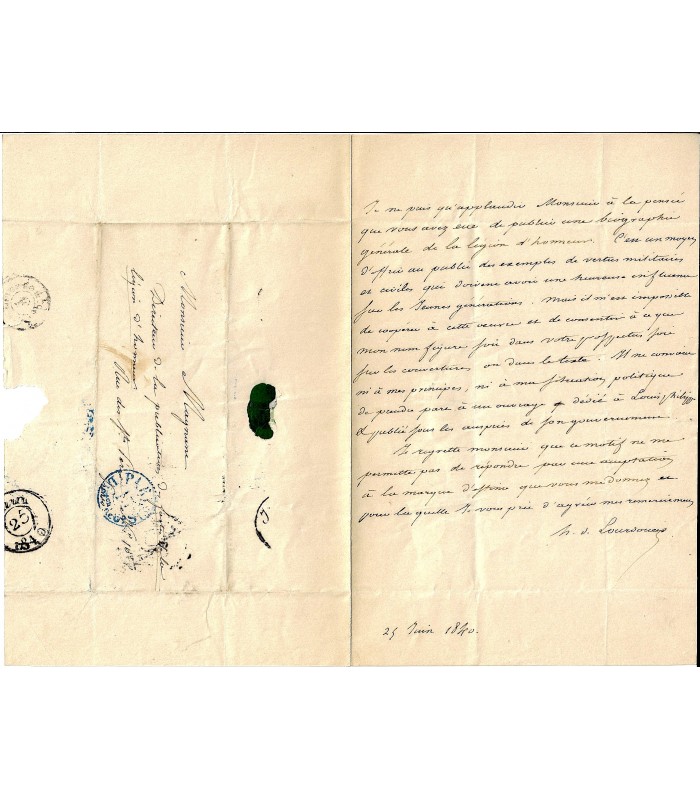 Monsieur Magnane
Directeur de la publication de la
légion d'honneur
Rue des
PARIS
25
184
Je ne puis qu'applaudir Monsieur à la pensée
que vous avez eue de publier une biographie
générale de la légion d'honneur. C'est un moyen
d'offrir au public des exemples de vertus militaires
et civiles qui doivent avoir une heureuse influence
sur les Jeunes générations. Mais il m'est impossible
de coopérer à cette oeuvre et de consentir à ce que
mon nom figure soit dans votre prospectus soit
sur les couvertures ou dans le texte. Il ne convient
ni à mes principes, ni à ma situation politique
de prendre part à un ouvrage dédié à Louis Philippe
& publié sous les auspices de son gouvernement.
Je regrette monsieur que ce motif ne me
permette pas de répondre par une acceptation
à la marque d'estime que vous me donnez et
pour la quelle Je vous prie d'agréer mes remerciemens
h. d. Lourdoueix
25 Juin 1840.